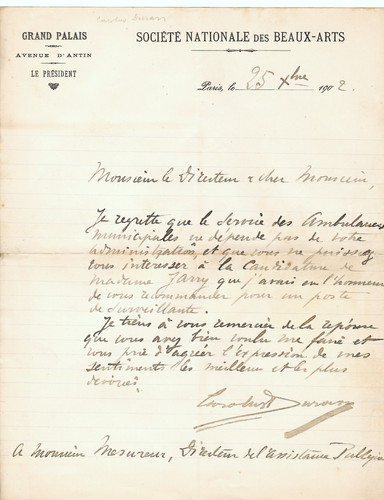 Carolus Duran
GRAND PALAIS
AVENUE D'ANTIN
LE PRÉSIDENT
SOCIÉTÉ NATIONALE DES BEAUX-ARTS
Paris, le 25 Xbre 1902.
Monsieur le Directeur & cher Monsieur,
Je regrette que le Service des Ambulances
municipales ne dépende pas de votre
administration, et que vous ne puissiez
vous intéresser à la candidature de
madame Jarry que j'avais eu l'honneur
de vous recommander pour un poste
de surveillante.
Je tiens à vous remercier de la réponse
que vous avez bien voulu me faire et
vous prie d'agréer l'expression de mes
sentiments les meilleurs et les plus
dévoués.
Carolus Duran
A Monsieur Mesureur, Directeur de l'Assistance Publique